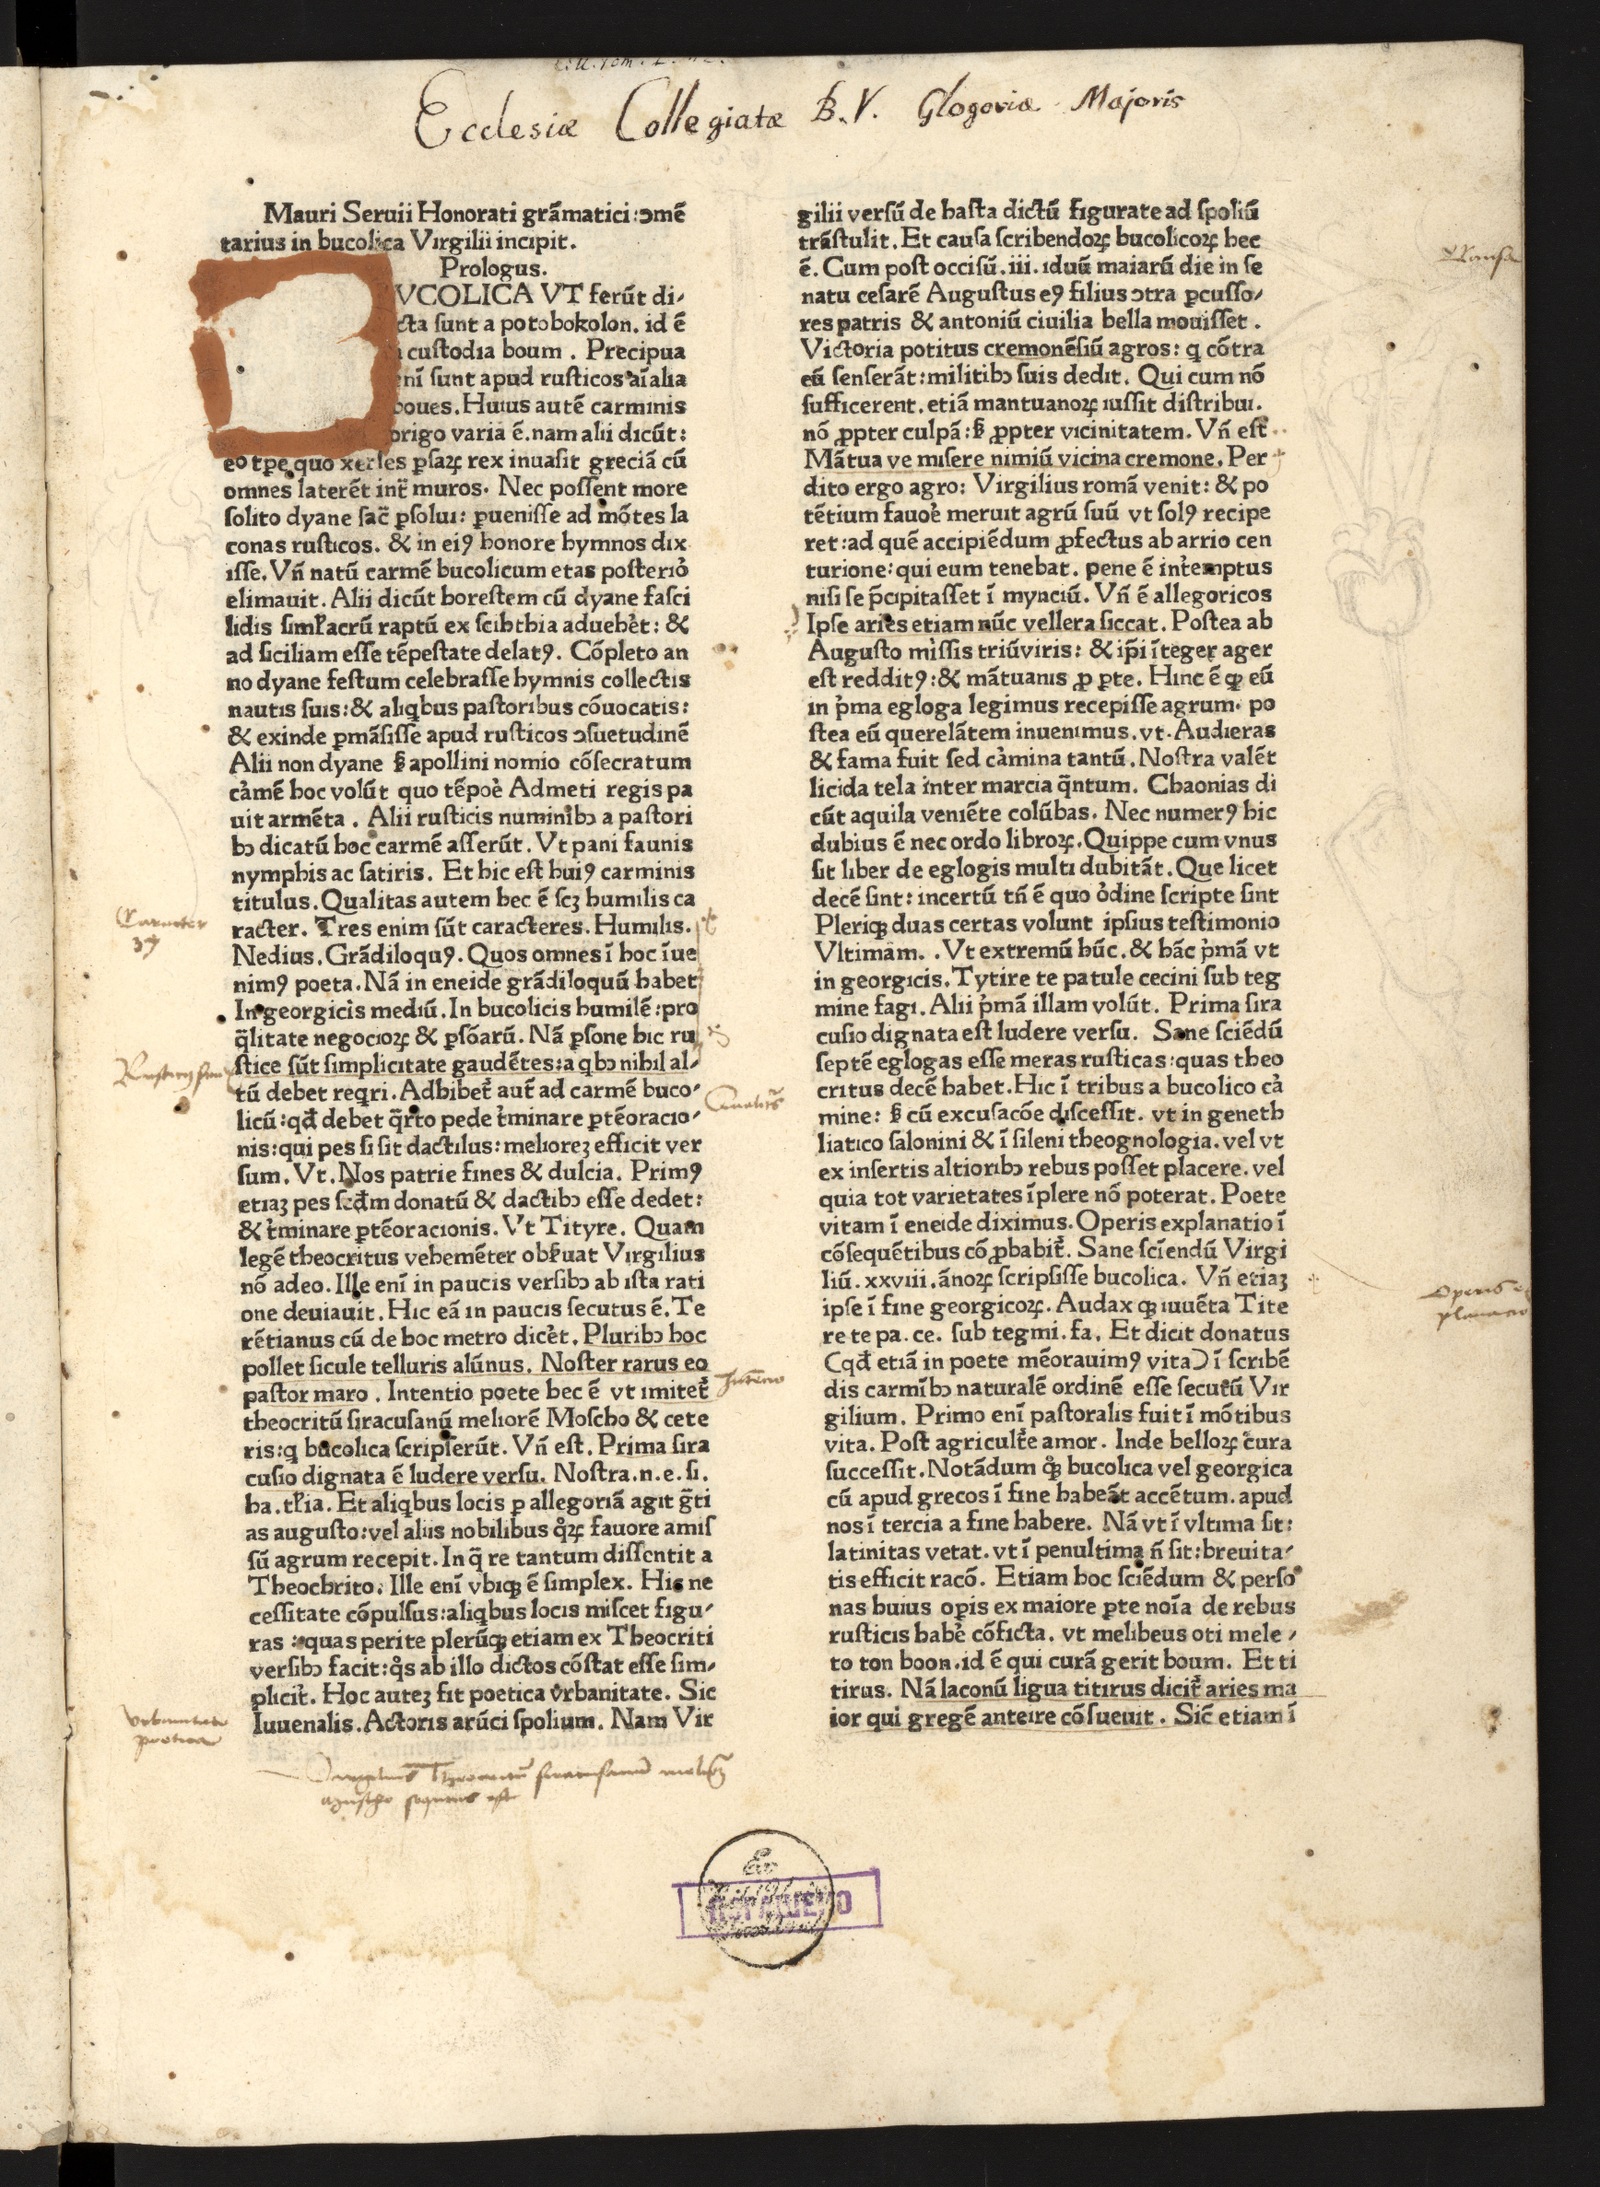 Ecclesiæ Collegiatæ B.V. Glogoviæ Majoris
Mauri Seruii Honorati grãmatici:ɔmẽ
tarius in bucolica Virgilii incipit.
Prologus.
VCOLICA VT ferũt di⸗
cta sunt a potobokolon. id ẽ
custodia boum . Precipua
enĩ sunt apud rusticos aĩalia
boues. Huius autẽ carminis
origo varia ẽ.nam alii dicũt:
eo tꝑe quo xerses ꝑsaꝝ rex inuasit greciã cũ
omnes laterẽt int̃ muros. Nec possent more
solito dyane sac̃ ꝑsolui: ꝑuenisse ad mõtes la
conas rusticos. & in eiꝰ honore hymnos dix
isse. Vñ natũ carmẽ bucolicum etas posterio᷑
elimauit. Alii dicũt horestem cũ dyane fasci
lidis simꝉacrũ raptũ ex scithia adueheᷣt: &
ad siciliam esse tẽpestate delatꝰ. Cõpleto an
no dyane festum celebrasse hymnis collectis
nautis suis:& aliqbus pastoribus cõuocatis:
& exinde ꝑmãsisse apud rusticos ɔsuetudinẽ
Alii non dyane ẞ apollini nomio cõsecratum
ca᷑mẽ hoc volũt quo tẽpoe᷑ Admeti regis pa
uit armẽta . Alii rusticis numinibꝫ a pastori
bꝫ dicatũ hoc carmẽ asserũt. Vt pani faunis
nymphis ac satiris. Et hic est huiꝰ carminis
titulus. Qualitas autem hec ẽ scꝫ humilis ca
racter. Tres enim sũt caracteres. Humilis.
Nedius. Grãdiloquꝰ. Quos omnes ĩ hoc ĩue
nimꝰ poeta. Nã in eneide grãdiloquũ habet
In georgicis mediũ. In bucolicis humilẽ :pro
q̃litate negocioꝝ & ꝑsõarũ. Nã ꝑsone hic ru
stice sũt simplicitate gaudẽtes:a qbꝫ nihil al⸗
tũ debet reqri. Adhibet᷑ aut̃ ad carmẽ buco⸗
licũ:qđ debet q̃rto pede t᷑minare ꝑtẽoracio⸗
nis:qui pes si sit dactilus: melioreꝫ efficit ver
sum. Vt. Nos patrie fines & dulcia. Primꝰ
etiaꝫ pes scđm donatũ & dactibꝫ esse dedet:
& t᷑minare ꝑtẽoracionis. Vt Tityre. Quam
legẽ theocritus vehemẽter obẜuat Virgilius
nõ adeo. Ille enĩ in paucis versibꝫ ab ista rati
one deuiauit. Hic eã in paucis secutus ẽ. Te
rẽtianus cũ de hoc metro dice᷑t. Pluribꝫ hoc
pollet sicule telluris alũnus. Noster rarus eo
pastor maro . Intentio poete hec ẽ vt imitet᷑
theocritũ siracusanũ meliorẽ Moscho & cete
ris:q bucolica scripserũt. Vñ est. Prima sira
cusio dignata ẽ ludere versu. Nostra.n.e.si.
ha.tꝉia. Et aliqbus locis ꝑ allegoriã agit g̃ti
as augusto:vel aliis nobilibus qͦꝝ fauore amis
sũ agrum recepit. In q̃ re tantum dissentit a
Theochrito. Ille enĩ vbiqꝫ ẽ simplex. Hic ne
cessitate cõpulsus:aliqbus locis miscet figu⸗
ras : quas perite plerũqꝫ etiam ex Theocriti
versibꝫ facit:qͦs ab illo dictos cõstat esse sim⸗
plicit᷑. Hoc auteꝫ fit poetica vrbanitate. Sic
Iuuenalis. Actoris arũci spolium. Nam Vir
gilii versũ de hasta dictũ figurate ad spoliũ
trãstulit. Et causa scribendoꝝ bucolicoꝝ hec
ẽ. Cum post occisũ. iii. iduũ maiarũ die in se
natu cesarẽ Augustus eꝰ filius ɔtra ꝑcusso⸗
res patris & antoniũ ciuilia bella mouisset .
Victoria potitus cremonẽsiũ agros: q cõtra
eũ senserãt:militibꝫ suis dedit. Qui cum nõ
sufficerent. etiã mantuanoꝝ iussit distribui.
nõ ꝓpter culpã:ẞ ꝓpter vicinitatem. Vñ est
Mãtua ve misere nimiũ vicina cremone. Per
dito ergo agro: Virgilius romã venit: & po
tẽtium fauoe᷑ meruit agrũ suũ vt solꝰ recipe
ret:ad quẽ accipiẽdum ꝓfectus ab arrio cen
turione:qui eum tenebat. pene ẽ int᷑emptus
nisi se p̃cipitasset ĩ mynciũ. Vñ ẽ allegoricos
Ipse aries etiam nũc vellera siccat. Postea ab
Augusto missis triũviris: & ip̃i ĩteger ager
est redditꝰ:& mãtuanis ꝓ ꝑte. Hinc ẽ qꝫ eũ
in p᷑ma egloga legimus recepisse agrum. po
stea eũ querelãtem inuenimus. vt. Audieras
& fama fuit sed ca᷑mina tantũ. Nostra valẽt
licida tela inter marcia q̃ntum. Chaonias di
cũt aquila veniẽte colũbas. Nec numerꝰ hic
dubius ẽ nec ordo libroꝝ. Quippe cum vnus
sit liber de eglogis multi dubitãt. Que licet
decẽ sint: incertũ tñ ẽ quo o᷑dine scripte sint
Pleriqꝫ duas certas volunt ipsius testimonio
Vltimam. . Vt extremũ hũc. & hãc p᷑mã vt
in georgicis. Tytire te patule cecini sub teg
mine fagi. Alii p᷑mã illam volũt. Prima sira
cusio dignata est ludere versu. Sane sciẽdũ
septẽ eglogas esse meras rusticas:quas theo
critus decẽ habet. Hic ĩ tribus a bucolico ca᷑
mine: ẞ cũ excusacõe discessit. vt in geneth
liatico salonini & ĩ sileni theognologia. vel vt
ex insertis altioribꝫ rebus posset placere. vel
quia tot varietates ĩplere nõ poterat. Poete
vitam ĩ eneide diximus. Operis explanatio ĩ
cõsequẽtibus cõꝓbabit᷑. Sane sciendũ Virgi
liũ. xxviii. ãnoꝝ scripsisse bucolica. Vñ etiaꝫ
ipse ĩ fine georgicoꝝ. Audax qꝫ iuuẽta Tite
re te pa. ce. sub tegmi. fa. Et dicit donatus
(qđ etiã in poete mẽorauimꝰ vita) ĩ scribẽ
dis carmĩbꝫ naturalẽ ordinẽ esse secutũ Vir
gilium. Primo enĩ pastoralis fuit ĩ mõtibus
vita. Post agricult᷑e amor. Inde belloꝝ cura
successit. Notãdum qͦꝫ bucolica vel georgica
cũ apud grecos ĩ fine habeãt accẽtum. apud
nos ĩ tercia a fine habere. Nã vt ĩ vltima sit:
latinitas vetat. vt ĩ penultima ñ sit:breuita⸗
tis efficit racõ. Etiam hoc sciẽdum & perso
nas huius oꝑis ex maiore ꝑte noĩa de rebus
rusticis habe᷑ cõficta. vt melibeus oti mele⸗
to ton boon.id ẽ qui curã gerit boum. Et ti
tirus. Nã laconũ ligua titirus dicit᷑ aries ma
ior qui gregẽ anteire cõsueuit. Sic̃ etiam ĩ
Causa
Caracter
Operis ex
planatio
Intentio
Vrbanitas
poetica
Ex